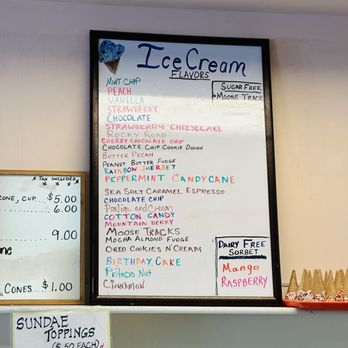 Ice Cream
FLAVORS
MINT CHIP
PEACH
VANILLA
STRAWBERRY
CHOCOLATE
STRAWBERRY CHEESECAKE
ROCKY ROAD
CHERRY CHOCOLATE CHIP
CHOCOLATE CHIP COOKIE DOUGH
BUTTER PECAN
PEANUT BUTTER FUDGE
RAINBOW SHERBET
PEPPERMINT CANDYCANE
SEA SALT CARAMEL ESPRESSO
CHOCOLATE CHIP
Praline and Cream
COTTON CANDY
MOUNTAIN BERRY
MOOSE TRACKS
MOCHA ALMOND FUDGE
OREO COOKIES N'CREAM
BIRTHDAY CAKE
Pistachio Nut
CINNAMON
SUGAR FREE
MOOSE TRACK
DAIRY FREE
SORBET
Mango
RASPBERRY
TAX INCLUDED
CONE, CUP $5.00
6.00
9.00
CONES $1.00
SUNDAE
TOPPINGS
($.50 EACH)